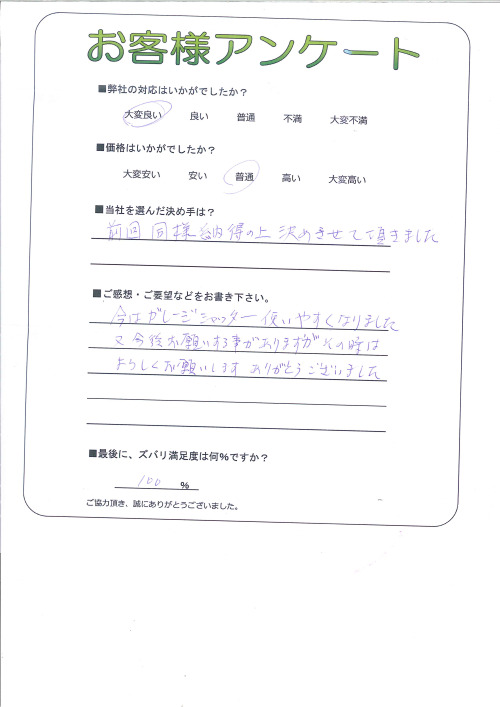 お客様アンケート
■弊社の対応はいかがでしたか？
大変良い 良い 普通 不満 大変不満
■価格はいかがでしたか？
大変安い 安い 普通 高い 大変高い
■当社を選んだ決め手は？
前回同様納得の上決めさせて頂きました
■ご感想・ご要望などをお書き下さい。
今はガレージシャッター使いやすくなりました
又今後お願いする事がありますがその時は
よろしくお願いします ありがとうございました
■最後に、ズバリ満足度は何％ですか？
100 ％
ご協力頂き、誠にありがとうございました。